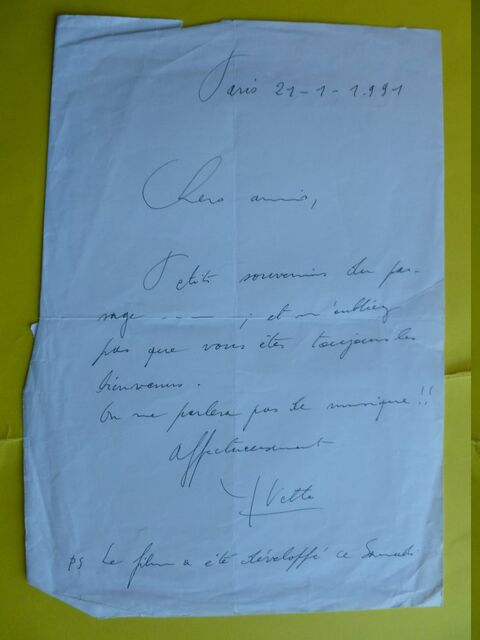 Paris 21-1-1.991
Chers amis,
Petits souvenirs du pas-
sage ---- ; et n'oubliez
pas que vous êtes toujours les
bienvenus.
On ne parlera pas de musique !!
Affectueusement
Yvette
PS Le film a été développé ce Samedi